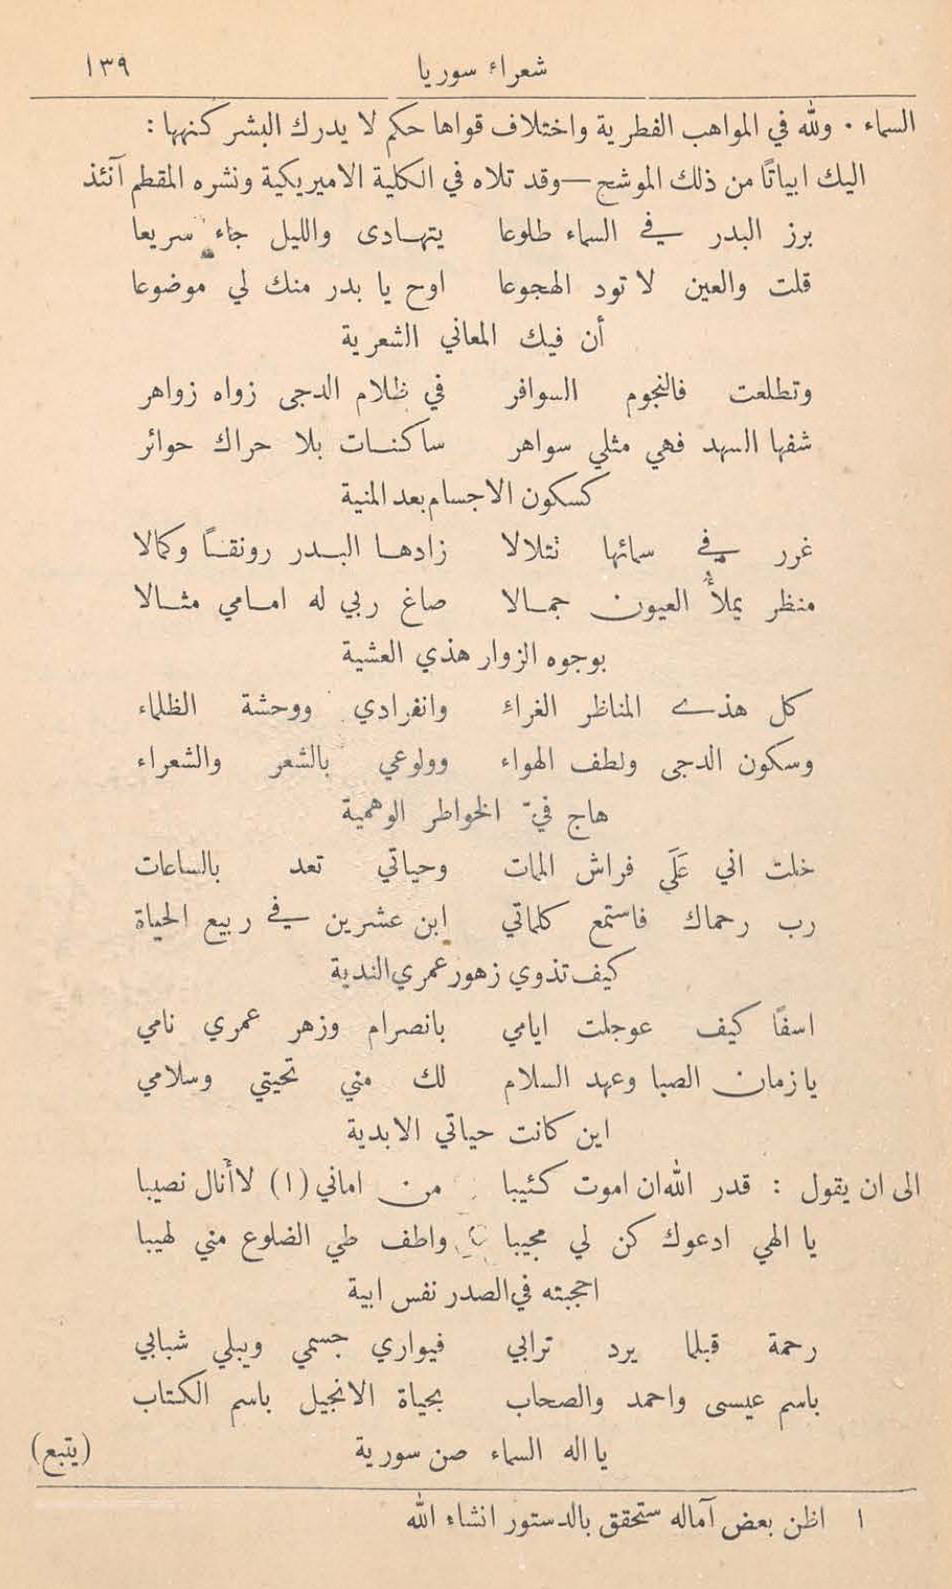 شعراء سوريا ١٣٩
السماء . ولله في المواهب الفطرية واختلاف قواها حكم لا يدرك البشر كنهها :
اليك ابياتًا من ذلك الموشح — وقد تلاه في الكلية الاميريكية ونشره المقطم آنئذ
برز البدر في السماء طلوعا يتهادى والليل جاء سريعا
قلت والعين لا تود الهجوعا اوح يا بدر منك لي موضوعا
أن فيك المعاني الشعرية
وتطلعت فالنجوم السوافر في ظلام الدجى زواه زواهر
شفها السهد فهي مثلي سواهر ساكنات بلا حراك حوائر
كسكون الاجسام بعد المنية
غرر في سمائها تتلالا زادها البدر رونقًا وكمالا
منظر يملأُ العيون جمالا صاغ ربي له امامي مثالا
بوجوه الزوار هذي العشية
كل هذي المناظر الغراء وانفرادي ووحشة الظلماء
وسكون الدجى ولطف الهواء وولوعي بالشعر والشعراء
هاج فيّ الخواطر الوهمية
خلت اني عَلَى فراش الممات وحياتي تعد بالساعات
رب رحماك فاستمع كلماتي ابن عشرين في ربيع الحياة
كيف تذوي زهور عمري الندية
اسفًا كيف عوجلت ايامي بانصرام وزهر عمري نامي
يا زمان الصبا وعهد السلام لك مني تحيتي وسلامي
اين كانت حياتي الابدية
الى ان يقول : قدر الله ان اموت كئيبا من اماني (١) لا أنال نصيبا
يا الهي ادعوك كن لي مجيبا واطف طي الضلوع مني لهيبا
احجبته في الصدر نفس ابية
رحمة قبلما يرد ترابي فيواري جسمي ويبلي شبابي
باسم عيسى واحمد والصحاب بحياة الانجيل باسم الكتاب
يا اله السماء صن سورية (يتبع)
١ اظن بعض آماله ستحقق بالدستور انشاء الله